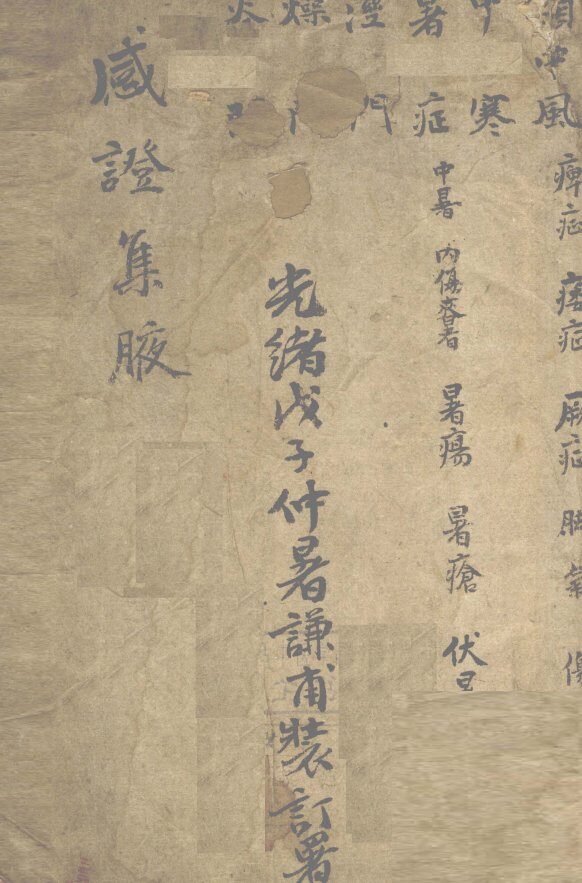 中風 痺症 痿症 厥症 脚氣
中寒
暑症 中暑 內傷 暑瘍 暑瘡 伏
溼門
燥
火
光緒戊子仲暑謙甫裝訂署
感證集腋